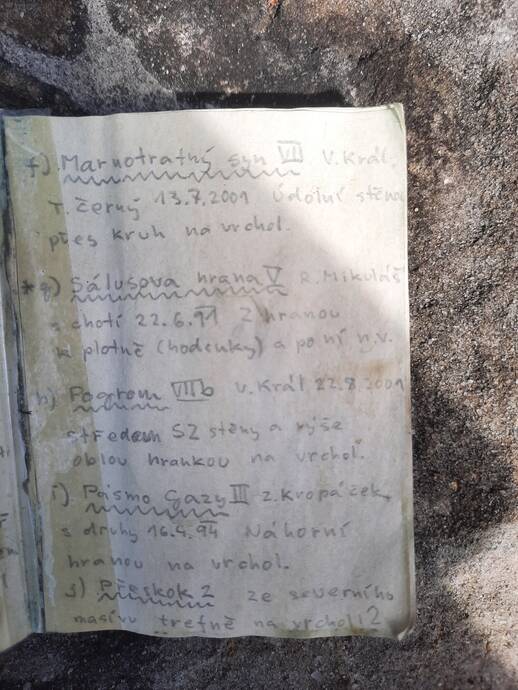 f) Marnotratný syn VII V. Král,
T. Černý 13.7.2001 Údolní stěnou
přes kruh na vrchol.
* g) Sálusova hrana V R. Mikuláš
s chotí 22.6.91 Z hranou
k plotně (hodinky) a po ní n.v.
h) Pogrom VIIb V. Král 22.8.2001
středem SZ stěny a výše
oblou hrankou na vrchol.
i) Pásmo Gazy III Z. Kropáček
s druhy 16.4.94 Náhorní
hranou na vrchol.
j) Přeskok 2 ze severního
masívu trefně na vrchol!?